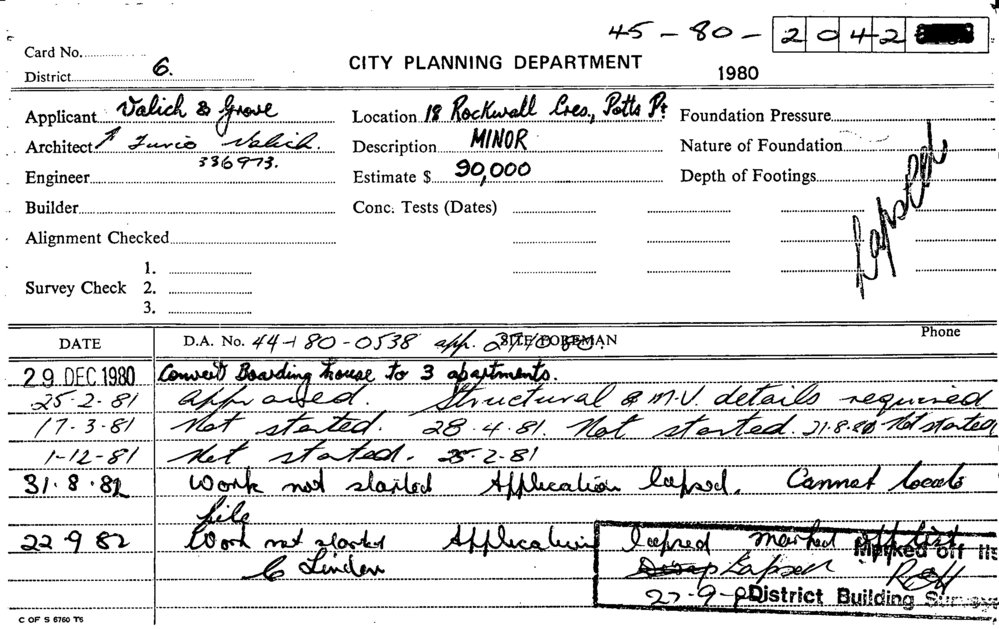 45 - 80 - 2042
Card No.
District 6.
CITY PLANNING DEPARTMENT
1980
Applicant Valich & Grove
Location 18 Rockwall Cres., Potts Pt
Foundation Pressure
Architect Furio Valich.
336973.
Description MINOR
Nature of Foundation
Engineer
Estimate $ 90,000
Depth of Footings
Lapsed
Builder
Conc. Tests (Dates)
Alignment Checked
Survey Check 1.
2.
3.
DATE
D.A. No. 44-80-0538 app. SITE FOREMAN
Phone
29 DEC 1980 Convert Boarding house to 3 apartments.
25-2-81 Approved. Structural & M.V. details required
17-3-81 Not started. 28.4.81. Not started. 21.8.81 Not started
1-12-81 Not started. 25.2.81
31.8.82 Work not started Application lapsed. Cannot locate
file
22 9 82 Work not started Application lapsed marked off list
C Linden
Marked off lis
Lapsed
27-9-
District Building Surveyo
C OF S 6760 T6